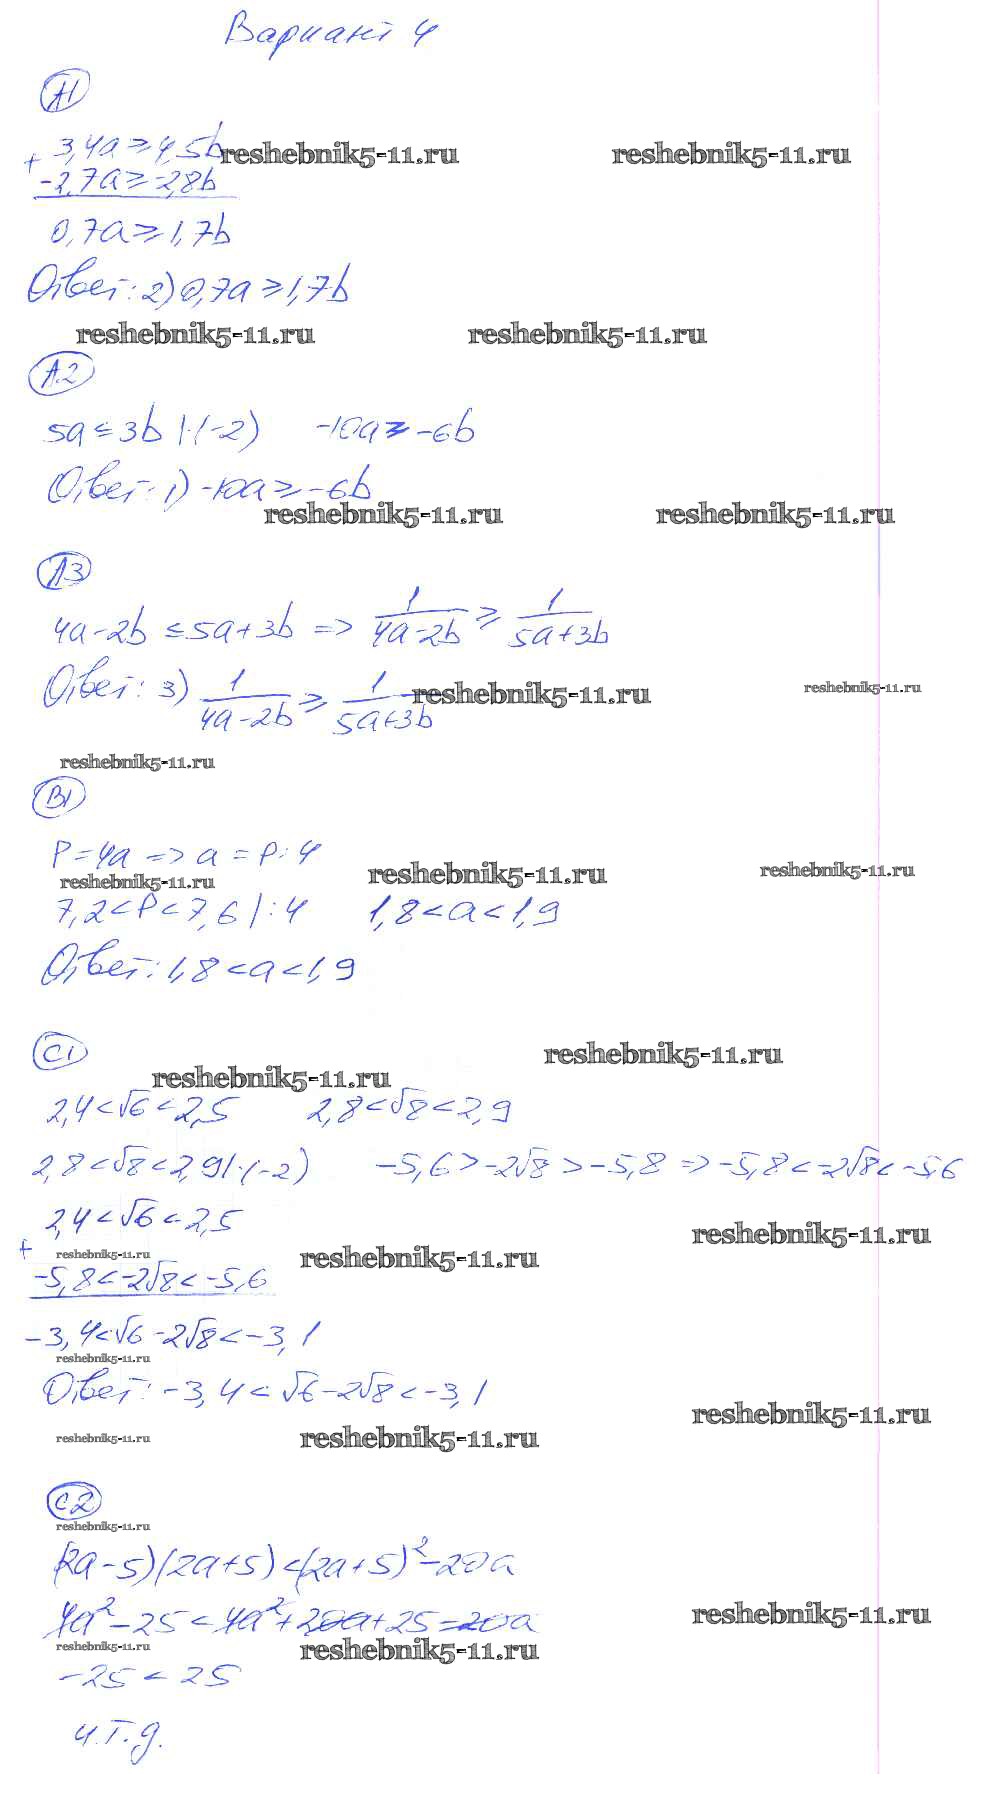 Вариант 4
А1
+ 3,4a ≥ 4,5b reshebnik5-11.ru reshebnik5-11.ru
-2,7a ≥ -2,8b
0,7a ≥ 1,7b
Ответ: 2) 0,7a ≥ 1,7b
reshebnik5-11.ru reshebnik5-11.ru
А2
5a ≤ 3b |·(-2) -10a ≥ -6b
Ответ: 1) -10a ≥ -6b
reshebnik5-11.ru reshebnik5-11.ru
А3
4a-2b ≤ 5a+3b => 1/(4a-2b) ≥ 1/(5a+3b)
Ответ: 3) 1/(4a-2b) ≥ 1/(5a+3b) reshebnik5-11.ru reshebnik5-11.ru
reshebnik5-11.ru
В1
P=4a => a = P:4
reshebnik5-11.ru reshebnik5-11.ru reshebnik5-11.ru
7,2<P<7,6 |:4 1,8<a<1,9
Ответ: 1,8<a<1,9
С1
reshebnik5-11.ru
reshebnik5-11.ru
2,4<√6<2,5 2,8<√8<2,9
2,8<√8<2,9|·(-2) -5,6>-2√8>-5,8 => -5,8<-2√8<-5,6
2,4<√6<2,5
+ reshebnik5-11.ru reshebnik5-11.ru reshebnik5-11.ru
-5,8<-2√8<-5,6
-3,4<√6-2√8<-3,1
reshebnik5-11.ru
Ответ: -3,4<√6-2√8<-3,1
reshebnik5-11.ru
reshebnik5-11.ru reshebnik5-11.ru
С2
reshebnik5-11.ru
(2a-5)(2a+5)<(2a+5)²-20a
4a²-25<4a²+20a+25-20a reshebnik5-11.ru
reshebnik5-11.ru reshebnik5-11.ru
-25<25
ч.т.д.